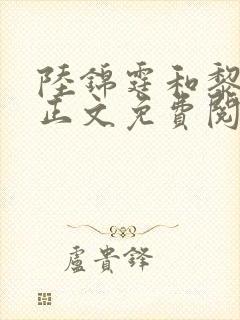 陸錦霆和黎
正文免費閱
盧貴鋒